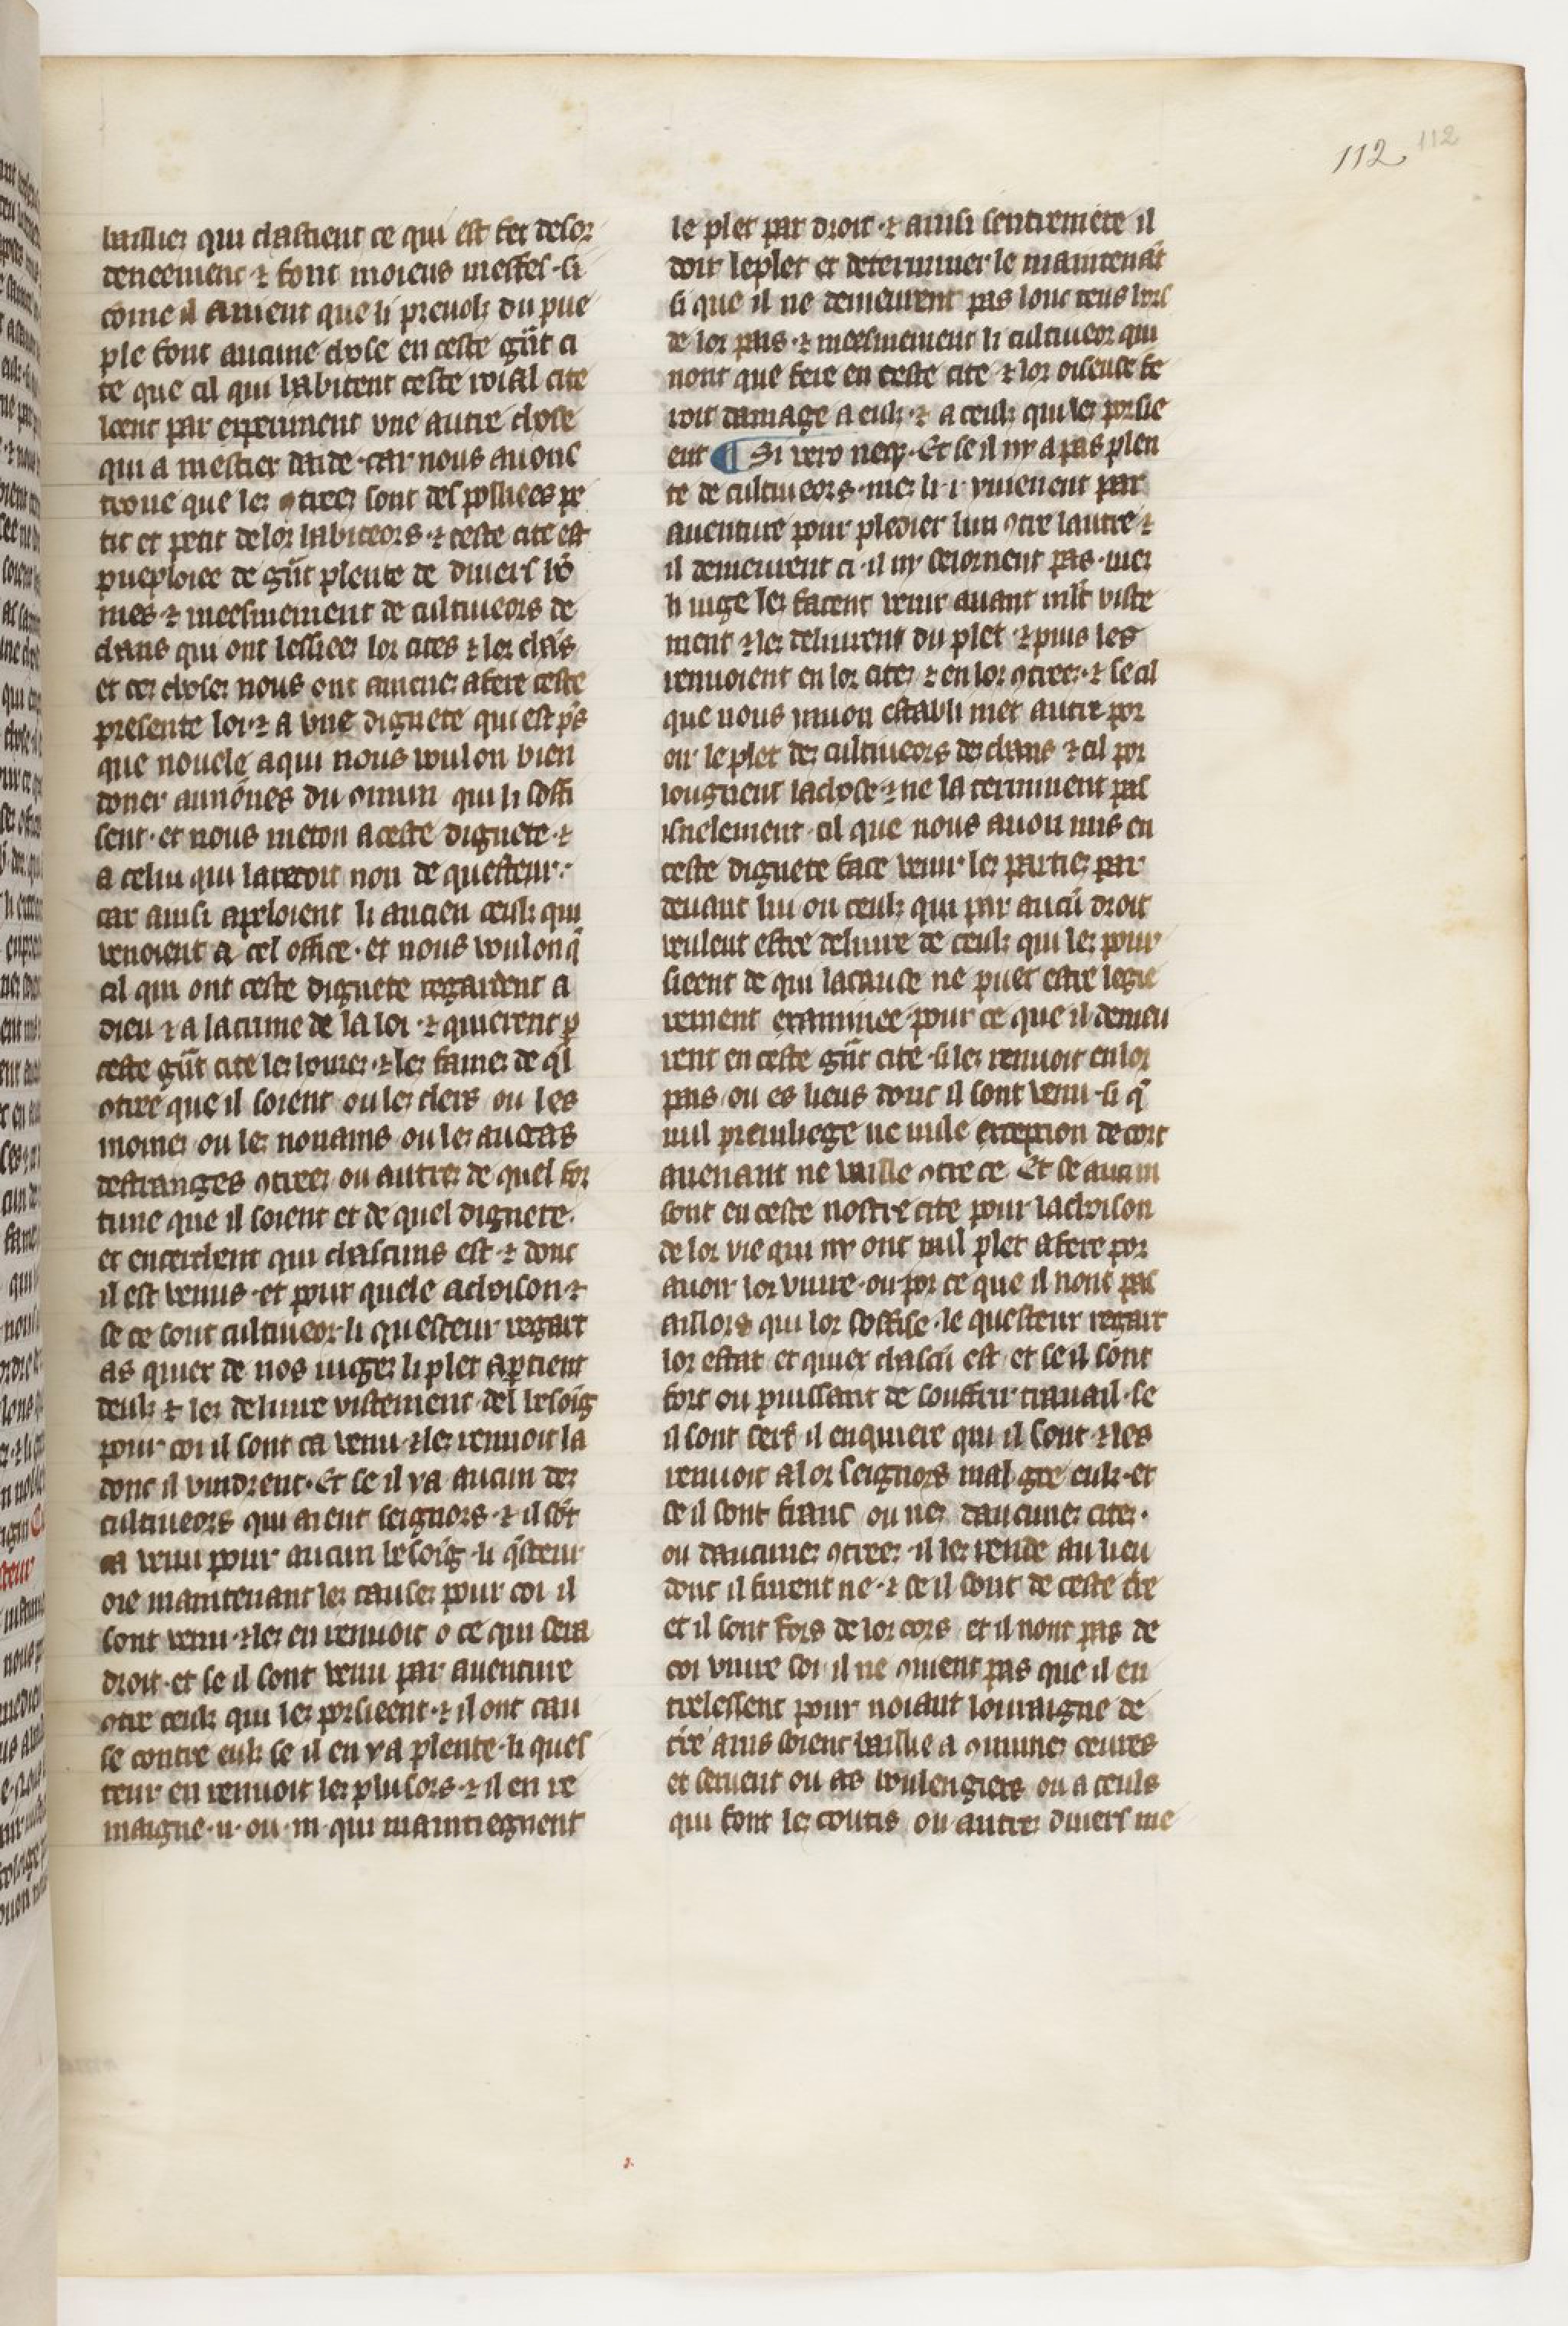 112 112
baillier qui chastient ce qui est fet desor
deneement ⁊ font moiens meffes · si
cōme il auient que li preuolz du pue
ple font aucune chose en ceste gñt ci
te que cil qui habitent ceste roial cite
seent par experiment vne autre chose
qui a mestier daide · car nous auons
troue que les ꝯtrees sont despoilliees pe
tit et petit de lor habiteors · ⁊ ceste cite est
pueploiee de gñt plente de diuers hō
mes ⁊ meesmement de cultiueors de
chans qui ont lessiees lor cites ⁊ lor chās
et ces choses nous ont amene a fere ceste
presente loi · ⁊ a vne dignete qui est p̄s
que nouele a qui nous voulon bien
doner aumones du ꝯmun qui li soffi
sent · et nous meton a ceste dignete · ⁊
a celui qui la reçoit non de questeur ·
car ainsi apeloient li ancien ceulz qui
venoient a cel office · et nous voulon q̄
cil qui ont ceste dignete regardent a
dieu ⁊ a la cume de la loi · ⁊ quierent ꝑ
ceste gñt cite les homes · ⁊ les fames de q̄l
ꝯtree que il soient ou les clers ou les
moines ou les nonains ou les auocas
destranges ꝯtrees ou autres de quel for
tune que il soient et de quel dignete ·
et encerchent qui chascuns est · ⁊ dont
il est venus · et pour quele achoison · ⁊
se ce sont cultiueor · li questeur regart
as quier de nos iuges li plet apartient
deulz ⁊ les deliure vistement del besoīg
pour coi il sont ca venu · ⁊ les renuoit la
dont il vindrent · Et se il ya aucun des
cultiueors qui aient seignors · ⁊ il sōt
ca venu pour aucun besoīg · li q̄steur
oie maintenant les causes pour coi il
sont venu · ⁊ les en renuoit o ce qui sera
droit · et se il sont venu par auenture
ꝯtre ceulz qui les porsieent · ⁊ il ont cau
se contre eulz se il en ya plente · li ques
teur en renuoit les plusors · ⁊ il en re
maigne · ii · ou · iii · qui maintiegnent
le plet par droit · ⁊ ainsi sentieremēte il
doit le plet et determiner le maintenāt
si que il ne demeurent pas lonc tens hors
de lor pais · ⁊ meesmement li cultiueor qui
nont que fere en ceste cite · ⁊ lor oiseuse fe
roit damage a eulz · ⁊ a ceulz qui les porsie
ent ¶ Si vero neqȝ · Et se il ny a pas plen
te de cultiueors · mes li · i · vuienent par
auenture pour pledier lun ꝯtre lautre · ⁊
il demeurent ci · il ny seiornent pas · mes
li iuge les facent venir auant mlt viste
ment ⁊ les deliurent du plet · ⁊ puis les
renuoient en lor cites ⁊ en lor ꝯtrees · ⁊ se cil
que nous i auon establi met autre por
oir le plet des cultiueors des chans ⁊ cil por
loignent la chose · ⁊ ne la terminent pas
isnelement · cil que nous auon mis en
ceste dignete face venir les parties par
deuant lui ou ceulz qui par aucū droit
veulent estre deliure de ceulz qui les pour
sieent de qui la cause ne puet estre legie
rement examinee pour ce que il demeu
rent en ceste gñt cite · si les renuoit en lor
pais ou es lieus dont il sont venu · si q̄
nul preuiliege ne nule exception de cort
auenant ne vaille ꝯtre ce Et se aucun
sont en ceste nostre cite pour lachoison
de lor vie qui ny ont nul plet a fere por
auoir lor viure · ou por ce que il nont pas
aillors qui lor soffise · le questeur regart
lor estat et quier chascū est et se il sont
fort ou puissant de souffrir trauail · se
il sont serf · il enquiere qui il sont ⁊ les
renuoit a lor seignors mal gre eulz · et
se il sont franc ou nez daucunes cites ·
ou daucunes ꝯtrees · il les rende au lieu
dont il furent ne · ⁊ se il sont de ceste tre
et il sont fors de lor cors et il nont pas de
coi viure soi · il ne ꝯuient pas que il en
treslessent pour noiant louraigne de
tre · ains soient baillie a ꝯmunes oeures
et seruent ou as boulengiers ou a ceuls
qui font les coutis ou autres diuers me